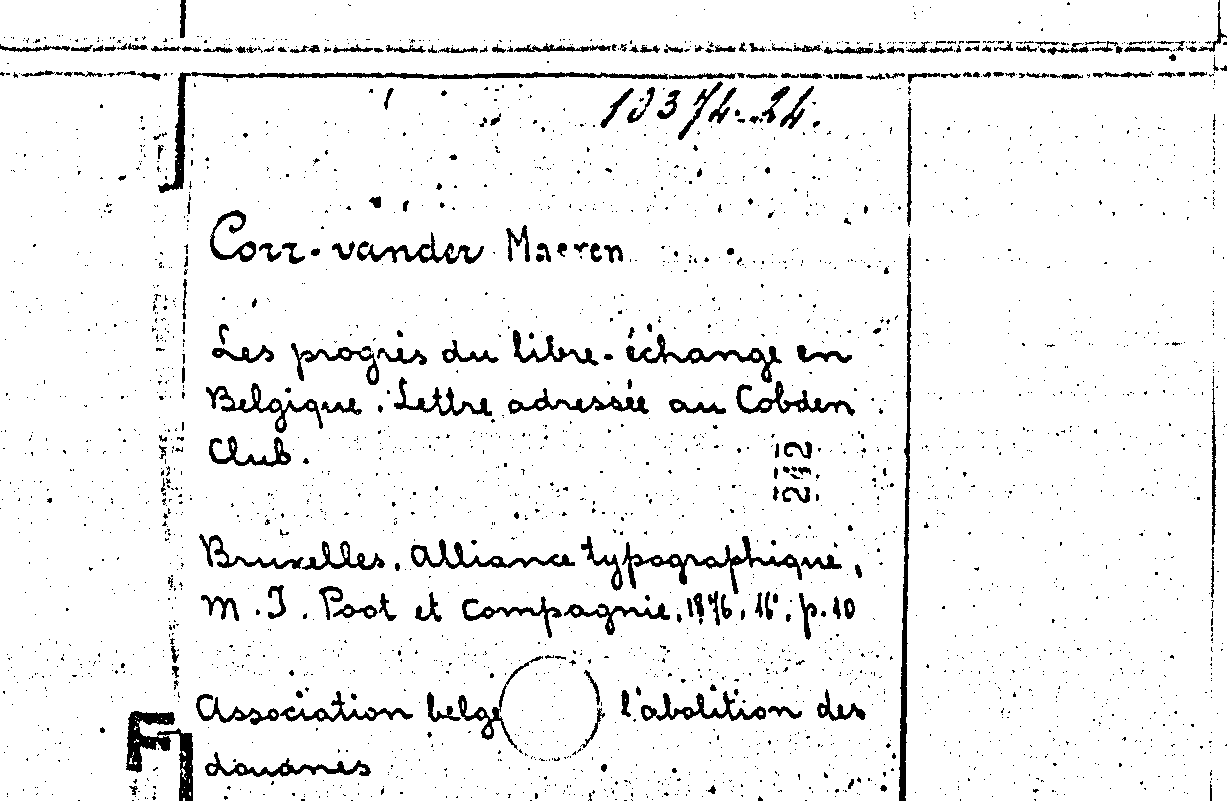 10374.24.
Corr-vander Maeren
Les progrès du libre-échange en
Belgique. Lettre adressée au Cobden
Club.
Bruxelles. Alliance typographique,
M. J. Poot et Compagnie, 1876, 16°. p. 10
Association belge l'abolition des
douanes